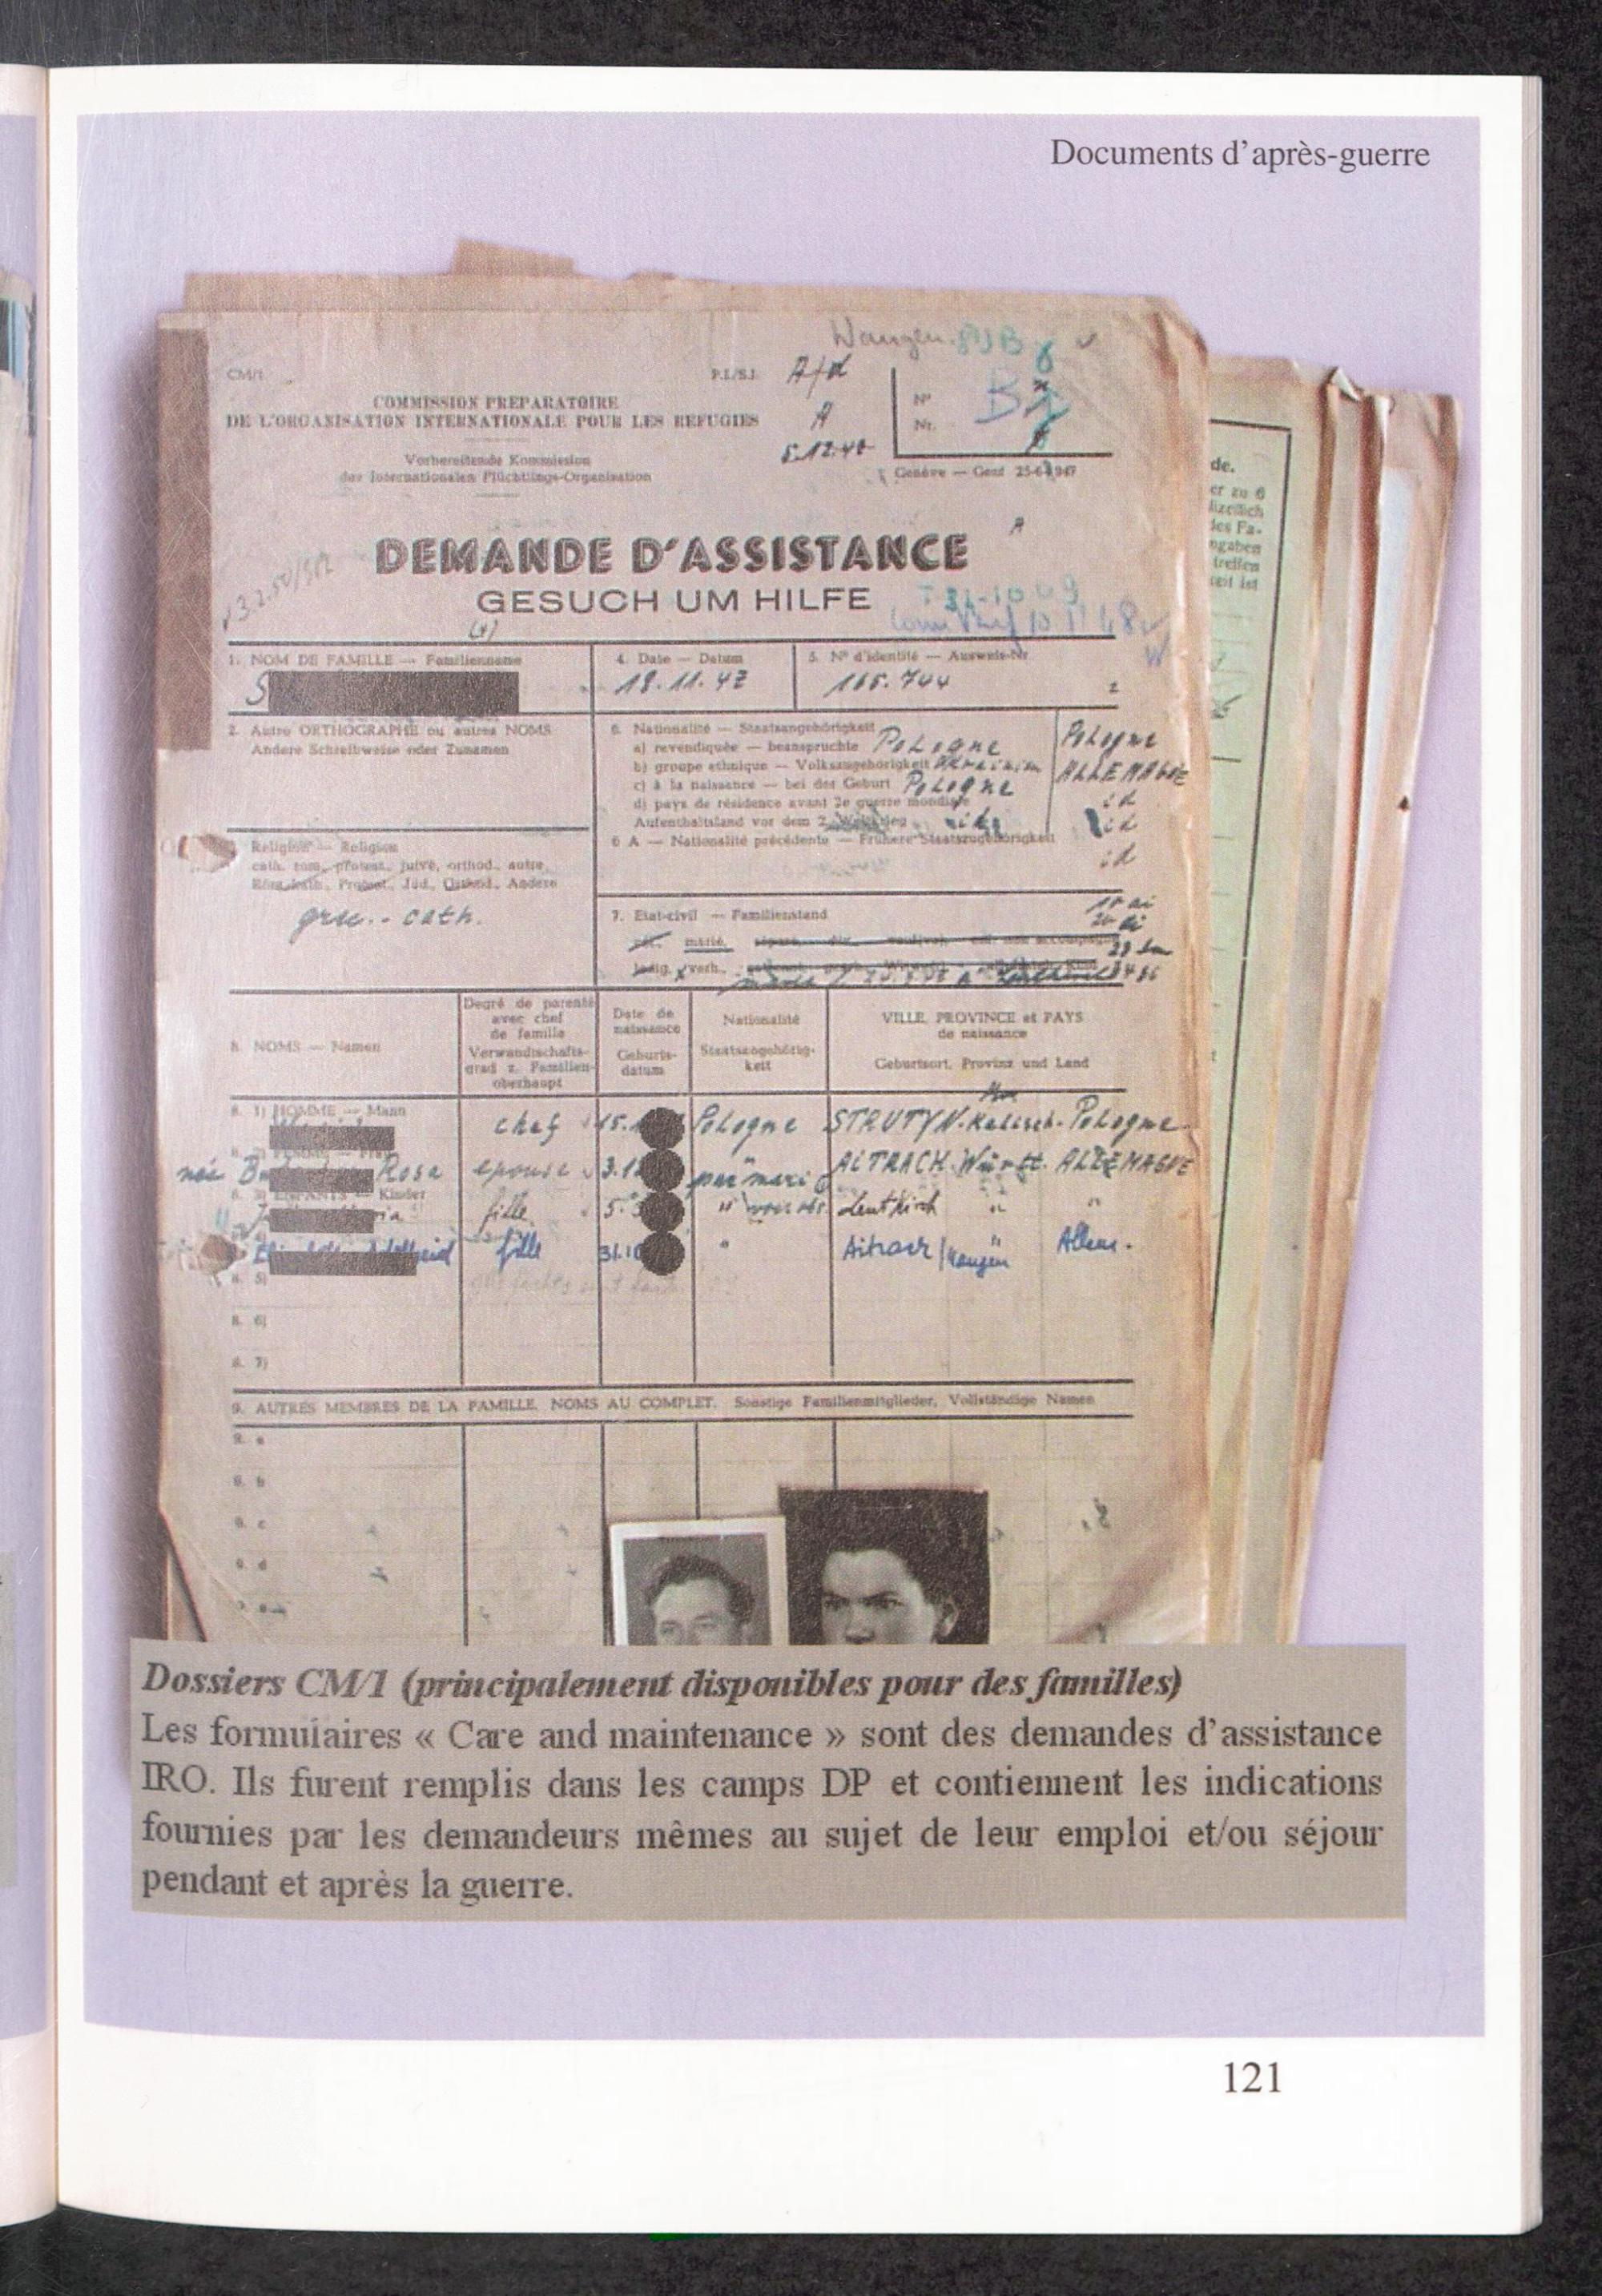 Documents d'après-guerre
Wangen
CM/1.
P.I./S.I.
A
COMMISSION PREPARATOIRE
DE L'ORGANISATION INTERNATIONALE POUR LES REFUGIES
Vorbereitende Kommission
der Internationalen Flüchtlings-Organisation
N°
Nr.
Genève — Genf 25-6-1947
DEMANDE D'ASSISTANCE
GESUCH UM HILFE
1. NOM DE FAMILLE — Familienname
S
4. Date — Datum
18.11.47
5. N° d'identité — Ausweis-Nr.
165.744
2. Autre ORTHOGRAPHE ou autres NOMS
Andere Schreibweise oder Zunamen
6. Nationalité — Staatsangehörigkeit
a) revendiquée — beanspruchte Pologne Pologne
b) groupe ethnique — Volkszugehörigkeit ALLEMAGNE
c) à la naissance — bei der Geburt Pologne id
d) pays de résidence avant 2e guerre mondiale
Aufenthaltsland vor dem 2. Weltkrieg id
6 A — Nationalité précédente — Frühere Staatszugehörigkeit
id
Religion — Religion
cath. rom., protest., juive, orthod., autre
Röm. kath., Protest., Jüd., Orthod., Andere
grec.-cath.
7. Etat-civil — Familienstand
marié
verh.
8. NOMS — Namen
Degré de parenté
avec chef
de famille
Verwandschafts-
grad z. Familien-
oberhaupt
Date de
naissance
Geburts-
datum
Nationalité
Staatsangehörig-
keit
VILLE, PROVINCE et PAYS
de naissance
Geburtsort, Provinz und Land
8. 1) HOMME — Mann
chef 15. Pologne STRUTYN. Pologne
8. 2) FEMME — Frau
née B Rosa epouse 3.1 par mari AITRACH. Württ. ALLEMAGNE
8. 3) ENFANTS — Kinder
fille 5. " Leutkirch " "
fille 31.1 " Aitrach/Wangen " Allem.
8. 5)
8. 6)
8. 7)
9. AUTRES MEMBRES DE LA FAMILLE, NOMS AU COMPLET. Sonstige Familienmitglieder, Vollständige Namen
9. a
9. b
9. c
9. d
de.
er zu 6
lizeilich
des Fa-
ngaben
treffen
Dossiers CM/1 (principalement disponibles pour des familles)
Les formulaires « Care and maintenance » sont des demandes d'assistance
IRO. Ils furent remplis dans les camps DP et contiennent les indications
fournies par les demandeurs mêmes au sujet de leur emploi et/ou séjour
pendant et après la guerre.
121